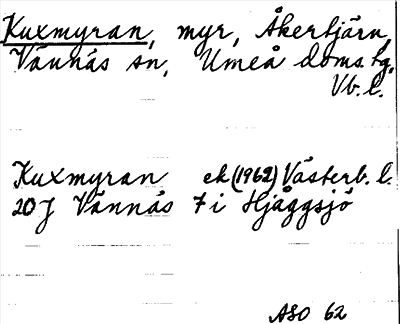 Kuxmyran, myr, Åkertjärn,
Vännäs sn, Umeå doms.tg,
Vb. l.
Kuxmyran ek (1962) Västerb. l.
20J Vännäs 7 i Hjåggsjö
ASO 62